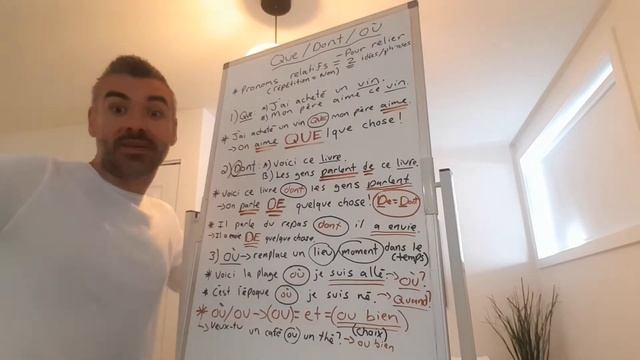 Que/Dont/Où
* Pronoms relatifs = Pour relier
(répétition = Non) 2 idées/phrases
1) Que A) J'ai acheté un vin.
B) Mon père aime ce vin.
* J'ai acheté un vin QUE mon père aime.
→ On aime QUE/que chose!
2) Dont: A) Voici ce livre.
B) Les gens parlent de ce livre.
* Voici ce livre dont les gens parlent
→ On parle DE quelque chose! De = Dont
* Il parle du repas dont il a envie.
→ Il a envie DE quelque chose.
3) Où → remplace un lieu/moment dans le (temps)
* Voici la plage où je suis allé → Où?
* C'est l'époque où je suis né. → Quand?
* Où/ou → (ou) = et = (ou bien)
(choix)
→ Veux-tu un café ou un thé? → ou bien